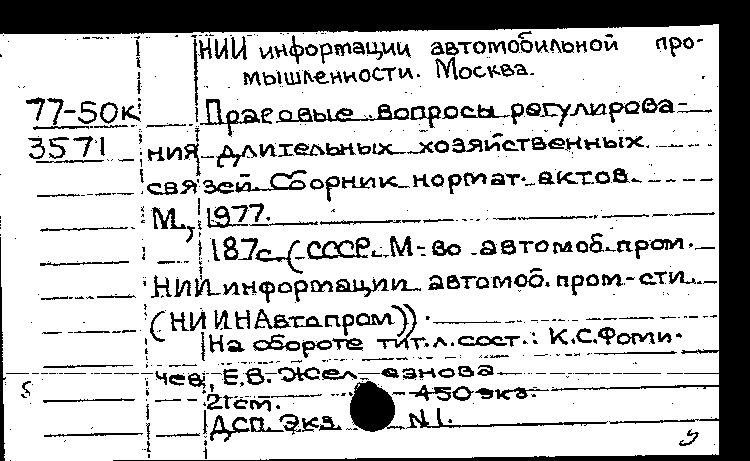 НИИ информации автомобильной про-
мышленности. Москва.
77-50к Правовые вопросы регулирова-
3571 ния длительных хозяйственных
связей. Сборник нормат. актов.
М., 1977.
187с. (СССР. М-во автомоб. пром.
НИИ информации автомоб. пром-сти
(НИИНАвтопром)).
На обороте тит. л. сост.: К.С. Фоми-
чев, Е.В. Жел езнова.
21см. 450 экз.
ДСП. Экз. N1.